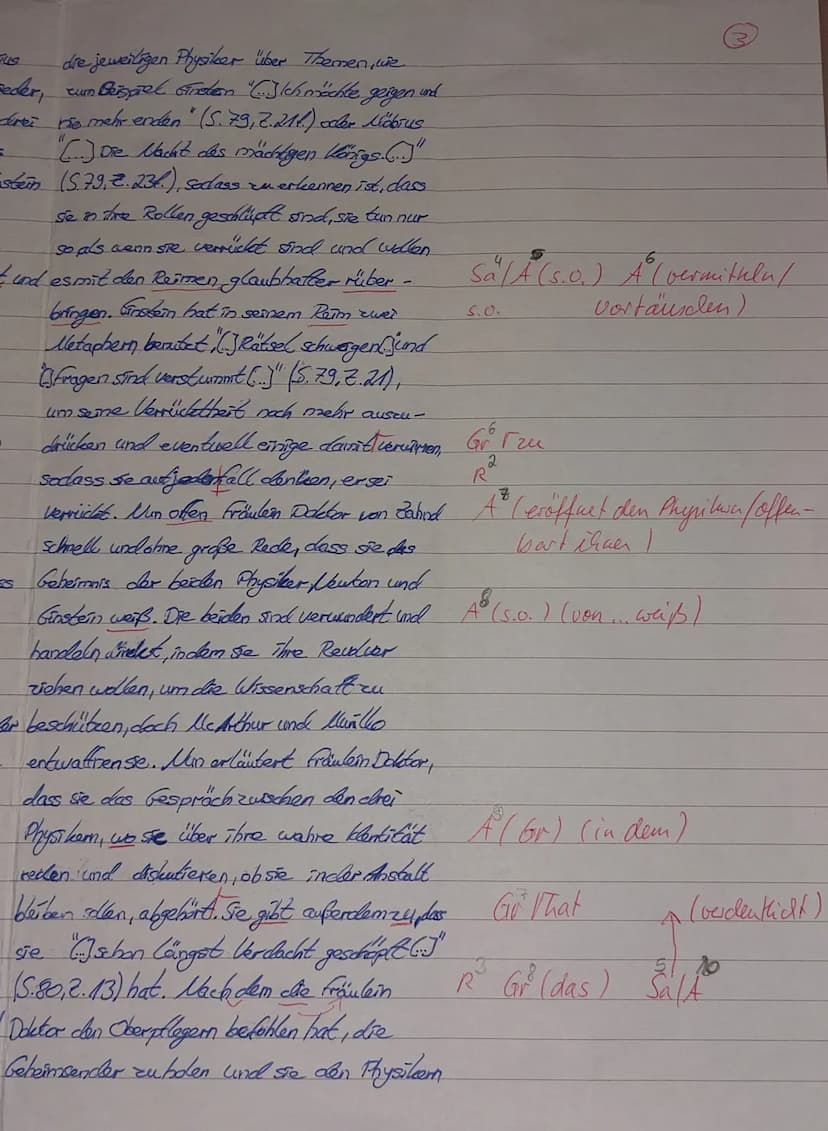 3
die jeweiligen Physiker über Themen, wie
eder, zum Beispiel Einstein "(..) Ich möchte geigen und
drei nie mehr enden" (S. 79, Z. 21f.) oder Möbius
"(..) Die Macht des mächtigen Königs. (..)"
stein (S. 79, Z. 23f.), sodass zu erkennen ist, dass
sie in ihre Rollen geschlüpft sind, sie tun nur
so als wenn sie verrückt sind und wollen
und es mit den Reimen glaubhafter rüber- Sa4/A5 (s.o.) A6 (vermitteln/
bringen. Einstein hat in seinem Reim zwei s.o. vortäuschen)
Metaphern benutzt, "(..) Rätsel schweigen (..)" und
"(..) Fragen sind verstummt (..)" (S. 79, Z. 21),
um seine Verrücktheit noch mehr auszu-
drücken und eventuell einige damit verwirren, Gr6 Γ zu
sodass sie auf jedenfall denken, er sei R2
verrückt. Nun offen Fräulein Doktor von Zahnd A7 (eröffnet den Physikern/offen-
schnell und ohne große Rede, dass sie das bart ihnen)
es Geheimnis der beiden Physiker, Newton und
Einstein weiß. Die beiden sind verwundert und A8 (s.o.) (von ... weiß)
handeln direkt, indem sie ihre Revolver
ziehen wollen, um die Wissenschaft zu
beschützen, doch McArthur und Murillo
entwaffnen sie. Nun erläutert Fräulein Doktor,
dass sie das Gespräch zwischen den drei
Physikern, wo sie über ihre wahre Identität A9 (Gr) (in dem)
reden und diskutieren, ob sie in der Anstalt
bleiben sollen, abgehört. Sie gibt außerdem zu, das Gr7 Γhat (verdeutlicht)
sie "(..) schon längst Verdacht geschöpft (..)"
(S. 80, Z. 13) hat. Nach dem die Fräulein R3 Gr8 (das) Sa5/A10
Doktor den Oberpflegern befohlen hat, die
Geheimsender zu holen und sie den Physikern